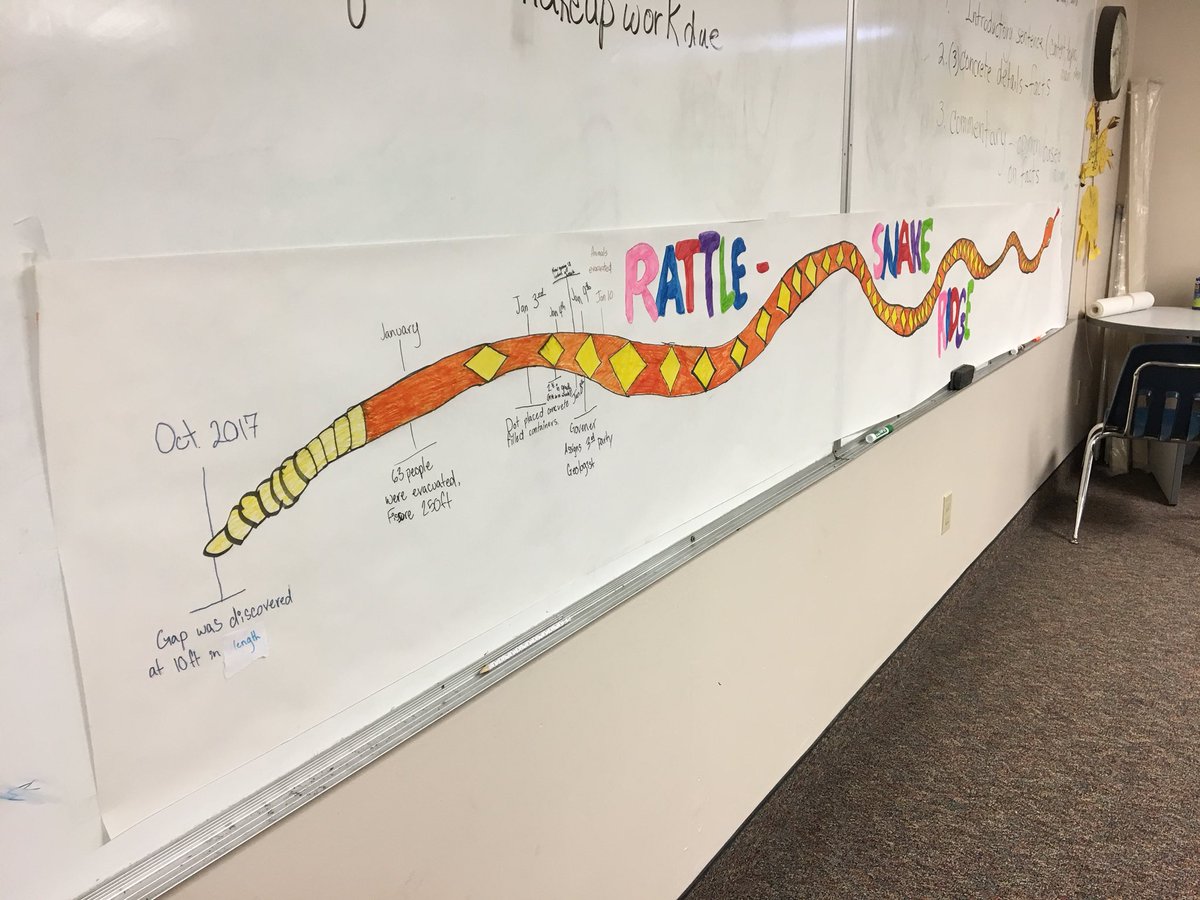 makeup work due
2. (3) concrete details - facts
3. commentary -
on facts
RATTLE -
SNAKE
RIDGE
Oct. 2017
Gap was discovered
at 10ft in length
January
63 people
were evacuated,
Jan 3rd
Dot placed concrete
filled containers.
Jan 9th
Govener
Assigns 3rd party
Geologist
Animals
evacuated
Jan 10